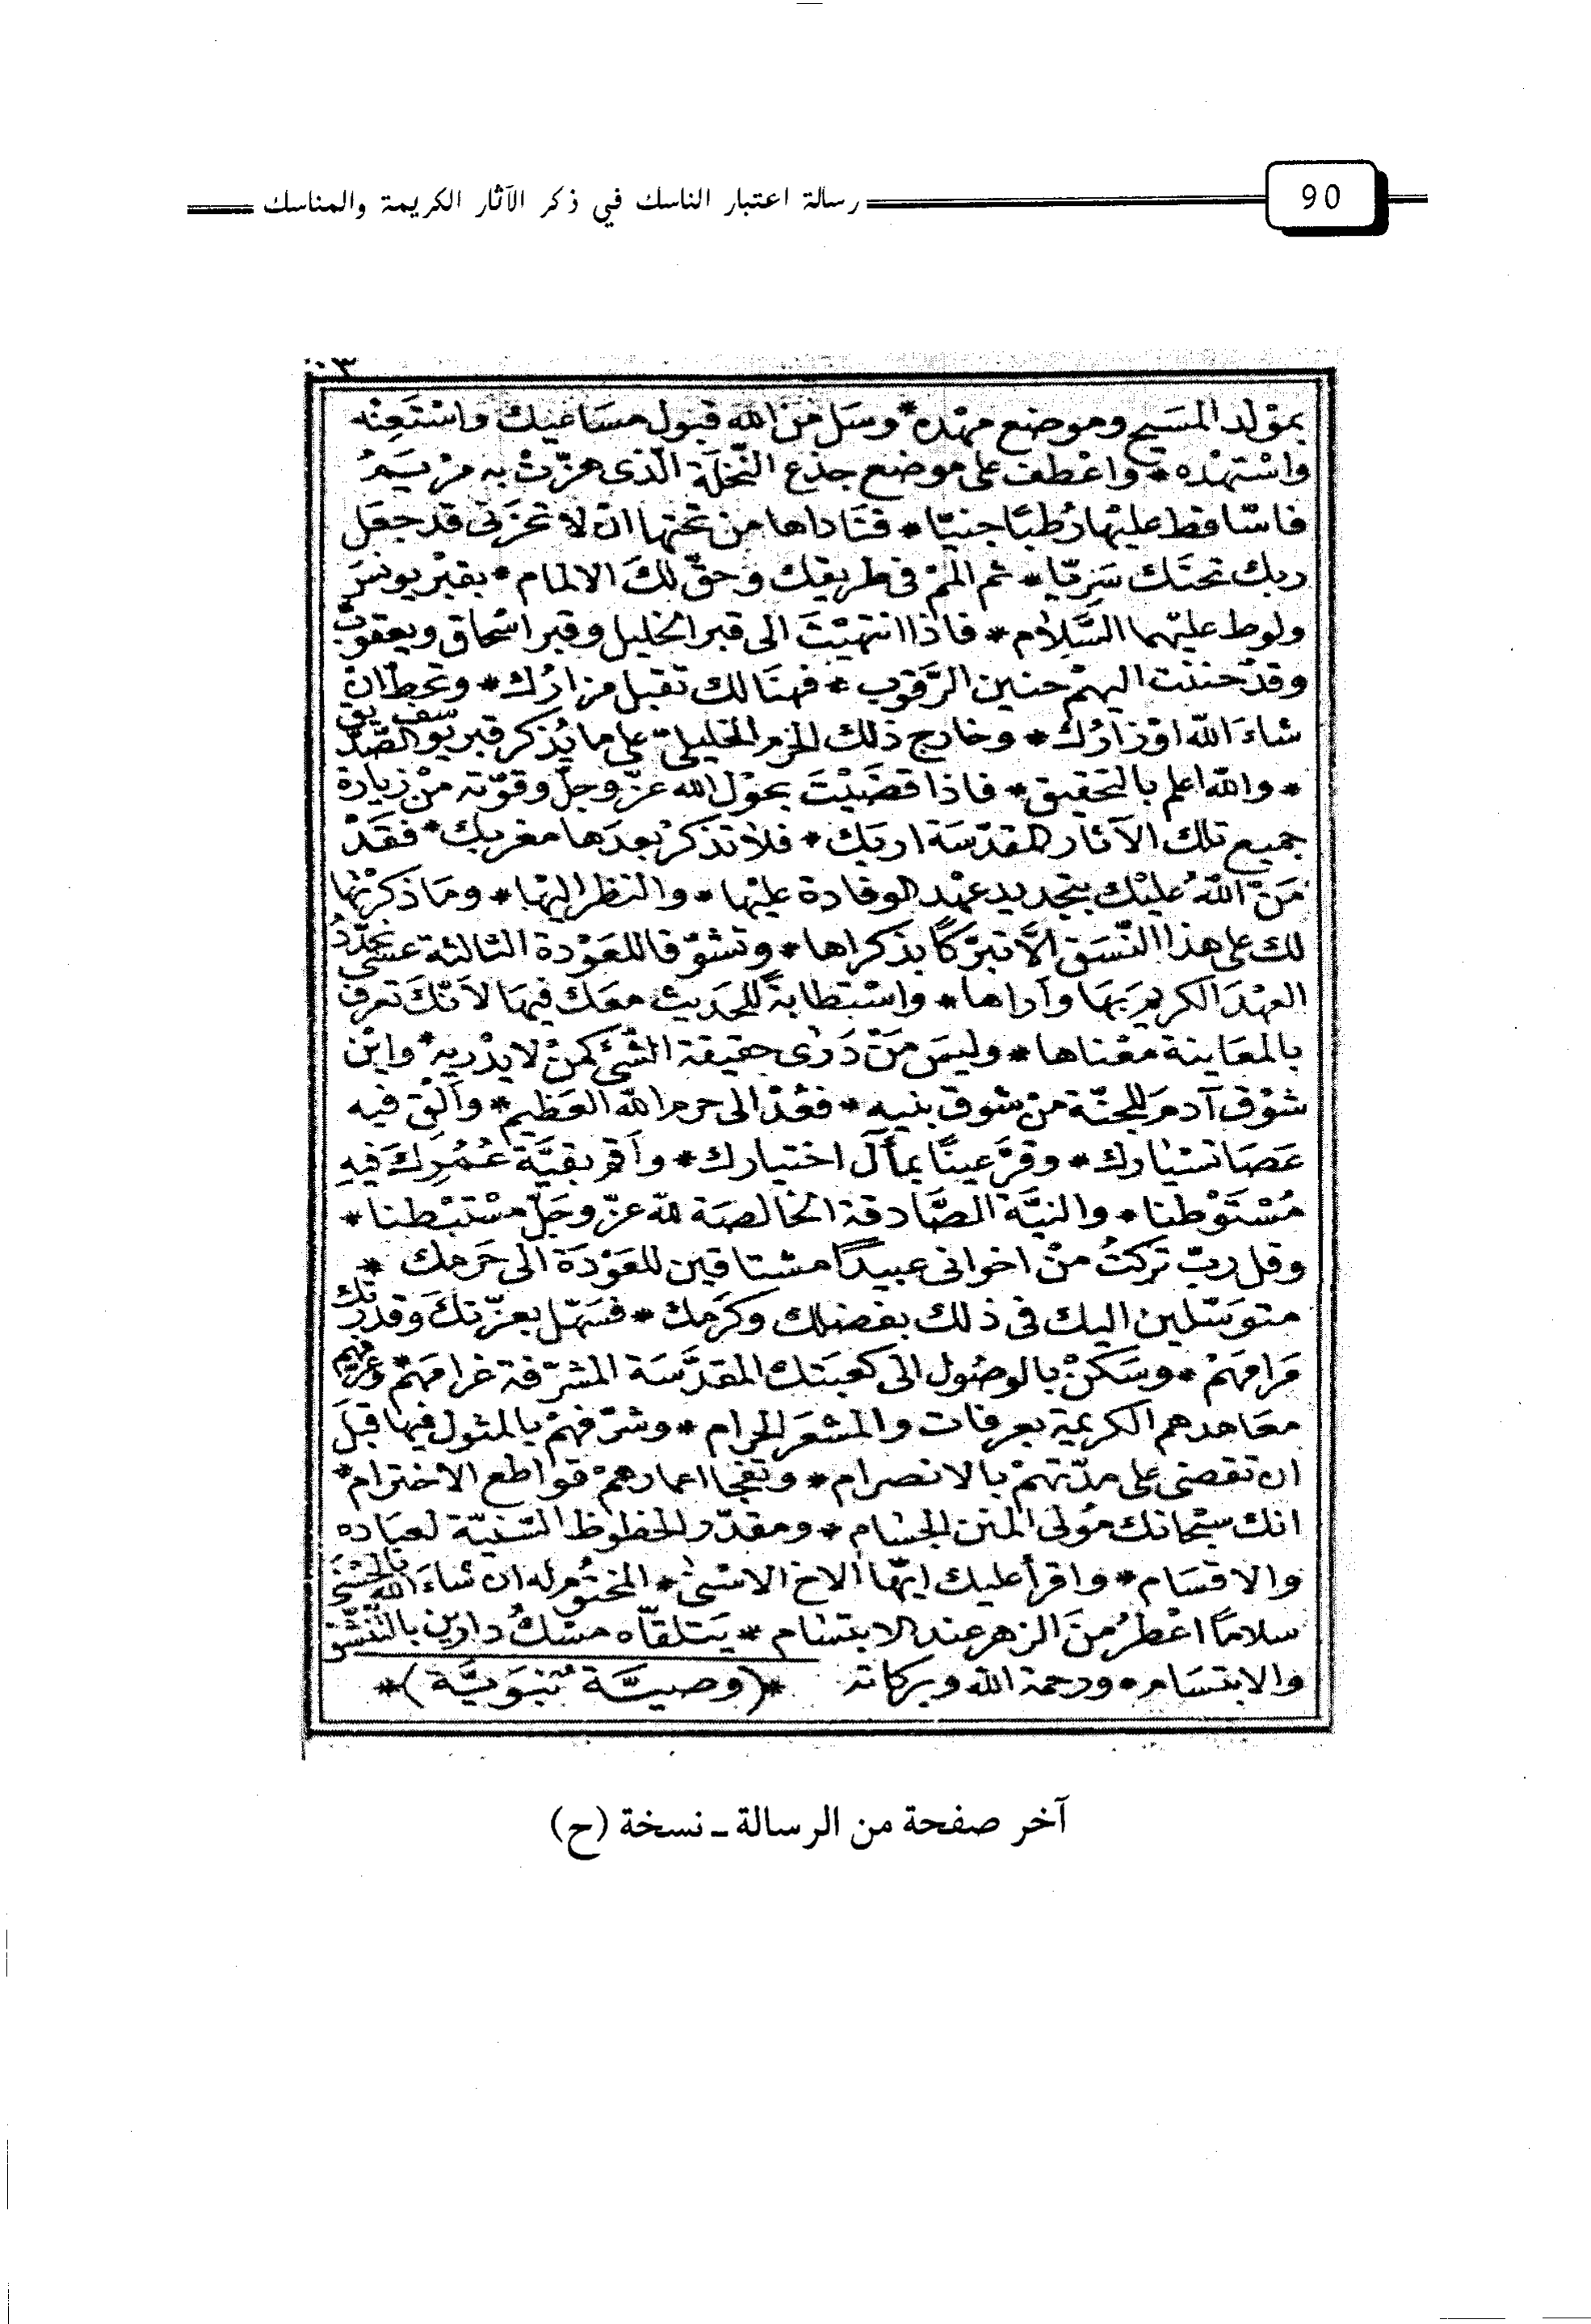 90
رسالة اعتبار الناسك في ذكر الآثار الكريمة والمناسك
٣٠
بمَوْلد المسَيح وموضع مهْده * وسَل مَن الله قبول مسَاعيك واسْتَعِنْه
واسْتهْده * واعْطف على موضع جذع النّخلَة الّذى هزّتْ به مرْيَمُ
فاسّاقط عليْها رُطبًا جنيّا * فنَاداها من تحتها ان لا تحْزَنى قد جعَل
ربك تحتَك سَريّا * ثم المْم فى طريقك وحقّ لكَ الالمام * بقبْر يونسَ
ولوط عليْهما السَّلام * فاذا انتهيْتَ الى قبر الخليل وقبر اسْحاق ويعقوبْ
وقدْ حننْت اليهمْ حنين الرَّقوب * فهنَالك تقبل مزارُك * وتحطّ ان
شاءَ الله اوْزارُك * وخارج ذلك الحرم الخليلىّ على ما يُذكر قبر يوسف الصّدّيق
* والله اعلم بالتحقيق * فاذا قضَيْتَ بحوْل الله عزّ وجلّ وقوّته منْ زيارة
جميع تلك الآثار المقدّسَة اربَك * فلا تذكرْ بعدَها مغربك * فقَدْ
مَنّ اللهُ عليْك بتجديد عهْد الوفادة عليْها * والنظر اليْها * ومَا ذكرْتها
لك على هذا النّسَق الاَّ تبرّكًا بذكراها * وتشوّقا للعَوْدة الثالثة عسَى نجدّدُ
العهْدَ الكريم بهَا وأراها * واسْتطابةً للحَديث معَك فيهَا لاَنّكَ تعرف
بالمعَاينة معْناها * وليسَ مَنْ دَرَى حقيقة الشّئ كمنْ لا يدْريه * واين
شوْق آدم للجنّة من شوق بنيه * فعُدْ الى حرم الله العَظيم * وألْقِ فيه
عَصَا تسْيَارك * وقرَّ عينًا بمآل اختيارك * وأقم بقيَّة عُمُرِك فيهِ
مُسْتَوْطنا * والنيَّة الصَّادقة الخالصَة لله عزّ وجَلّ مسْتبْطنا *
وقل ربّ تركتُ منْ اخوانى عبيدًا مشتاقين للعَوْدَة الى حَرَمك *
متوَسّلين اليك فى ذلك بفضلك وكَرَمك * فسَهّل بعزّتكَ وقدرتك
مَرامَهمْ * وسَكنْ بالوصُول الى كعبَتك المقدَّسَة المشرّفة غرامَهمْ * وعرّفهم
معَاهدهم الكريمة بعرفات والمشعَر الحرام * وشرّفهمْ بالمثول فيها قبلَ
ان تقضى على مدّتهمْ بالانصرام * وتفجا اعمارهمْ قواطع الاخترام *
انك سبْحانك مَوْلى المنَن الجسَام * ومقدّر الحظوظ السَّنيّة لعبَاده
والاقسَام * واقرأ عليك ايّها الاخ الاسْنىٰ * المختوُم له ان شاءَ اللهُ بالحسْنىٰ
سلامًا اعْطرُ منَ الزهر عند الابتسَام * يَتلقّاه مسْكُ دارين بالتّنَشّق
والابتسَام * ورحمة الله وبركاته * (وصيَّة نبَويَّة) *
آخر صفحة من الرسالة ـ نسخة (ح)